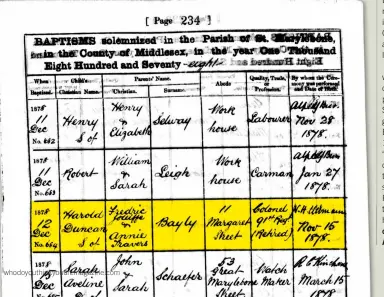 [ Page 234 ]
BAPTISMS solemnized in the Parish of St. Marylebone,
in the County of Middlesex, in the year One Thousand
Eight Hundred and Seventy-eight
When Baptized. Child's Christian Name. Parents' Name. Christian. Surname. Abode Quality, Trade, or Profession. By whom the Ceremony was performed and Date of Birth
1878 11 Dec No. 662 Henry S of Henry & Elizabeth Selway Work house Labourer Nov 28 1878.
1878 11 Dec No. 663 Robert S of William & Sarah Leigh Work house Carman Jan 27 1878.
1878 12 Dec No. 664 Harold Duncan S of Fredric & Annie Travers Bayly 11 Margaret Street Colonel 91st Regt (Retired) Nov 15 1878.
1878 15 Sarah Aveline John & Sarah Schaefer 53 Great Marylebone Street Watch Maker March 15